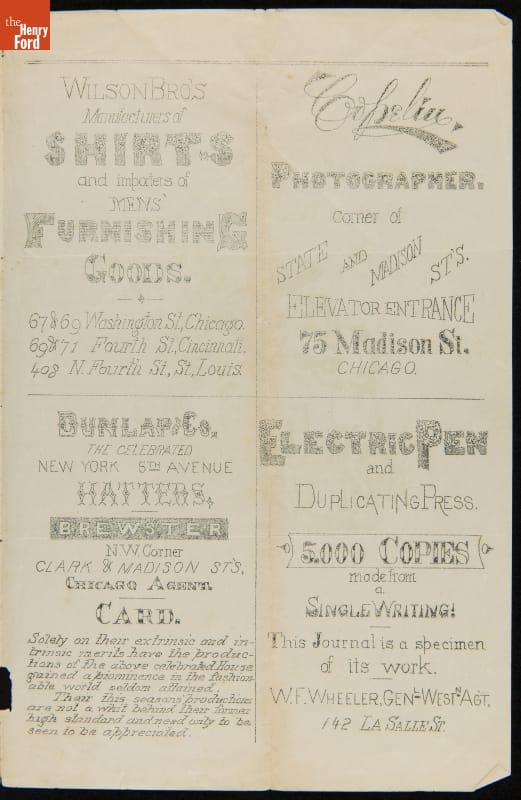 the
Henry
Ford
WILSON BRO'S
Manufacturers of
SHIRTS
and importers of
MENS'
FURNISHING
GOODS.
67 & 69 Washington St, Chicago.
69 & 71 Fourth St, Cincinnati.
408 N. Fourth St, St, Louis.
DUNLAP & Co,
THE CELEBRATED
NEW YORK 5TH AVENUE
HATTERS,
BREWSTER
N.W. Corner
CLARK & MADISON ST'S,
CHICAGO AGENT.
CARD.
Solely on their extrinsic and in-
trinsic merits have the produc-
tions of the above celebrated House
gained a prominence in the fashion-
able world seldom attained.
Their this seasons' productions
are not a whit behind their former
high standard and need only to be
seen to be appreciated.
Copelin,
PHOTOGRAPHER.
Corner of
STATE AND MADISON ST'S.
ELEVATOR ENTRANCE
75 Madison St.
CHICAGO.
ELECTRIC PEN
and
DUPLICATING PRESS.
5.000 COPIES
made from
a
SINGLE WRITING!
This Journal is a specimen
of its work.
W. F. WHEELER, GENL- WESTN AGT,
142 LA SALLE ST.